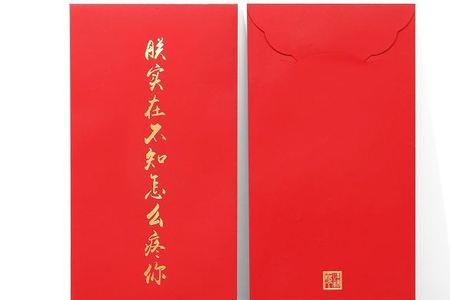 朕实在不知怎么疼你